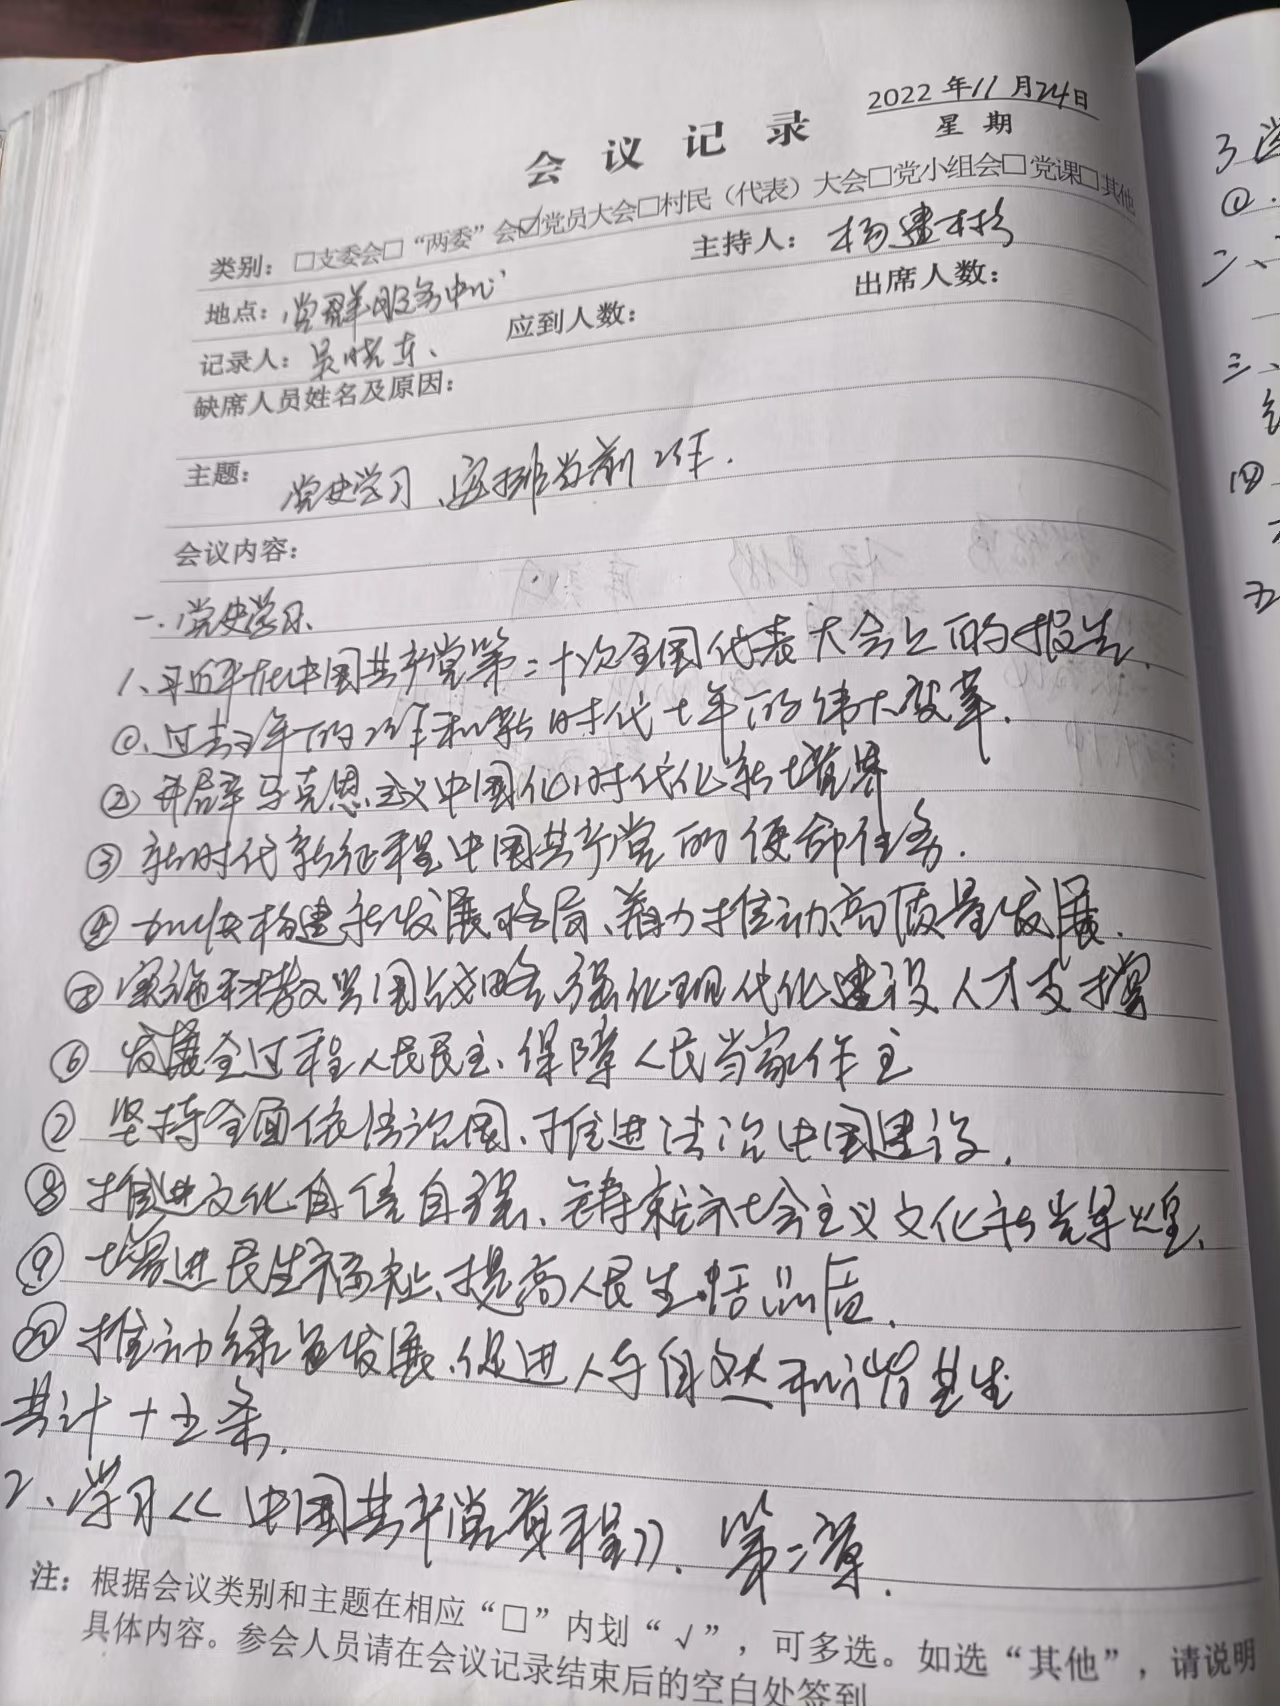 2022 年 11 月 24 日
会议记录
星期
类别：□支委会□“两委”会☑党员大会□村民（代表）大会□党小组会□党课□其他
地点：党群服务中心 主持人：杨建彬
记录人：吴晓东、 应到人数： 出席人数：
缺席人员姓名及原因：
主题：党史学习、安排当前工作.
会议内容：
一.党史学习
1、习近平在中国共产党第二十次全国代表大会上的报告.
①、过去5年的工作和新时代十年的伟大变革.
② 开辟马克思主义中国化时代化新境界
③ 新时代新征程中国共产党的使命任务.
④ 加快构建新发展格局、着力推动高质量发展.
⑤ 实施科教兴国战略、强化现代化建设人才支撑
⑥ 发展全过程人民民主、保障人民当家作主
⑦ 坚持全面依法治国、推进法治中国建设.
⑧ 推进文化自信自强、铸就社会主义文化新光辉煌.
⑨ 增进民生福祉、提高人民生活品质.
⑩ 推动绿色发展、促进人与自然和谐共生
共计十五条.
2、学习《中国共产党章程》.第二章.
注：根据会议类别和主题在相应“□”内划“√”，可多选。如选“其他”，请说明
具体内容。参会人员请在会议记录结束后的空白处签到
3
二、
三、
四
五